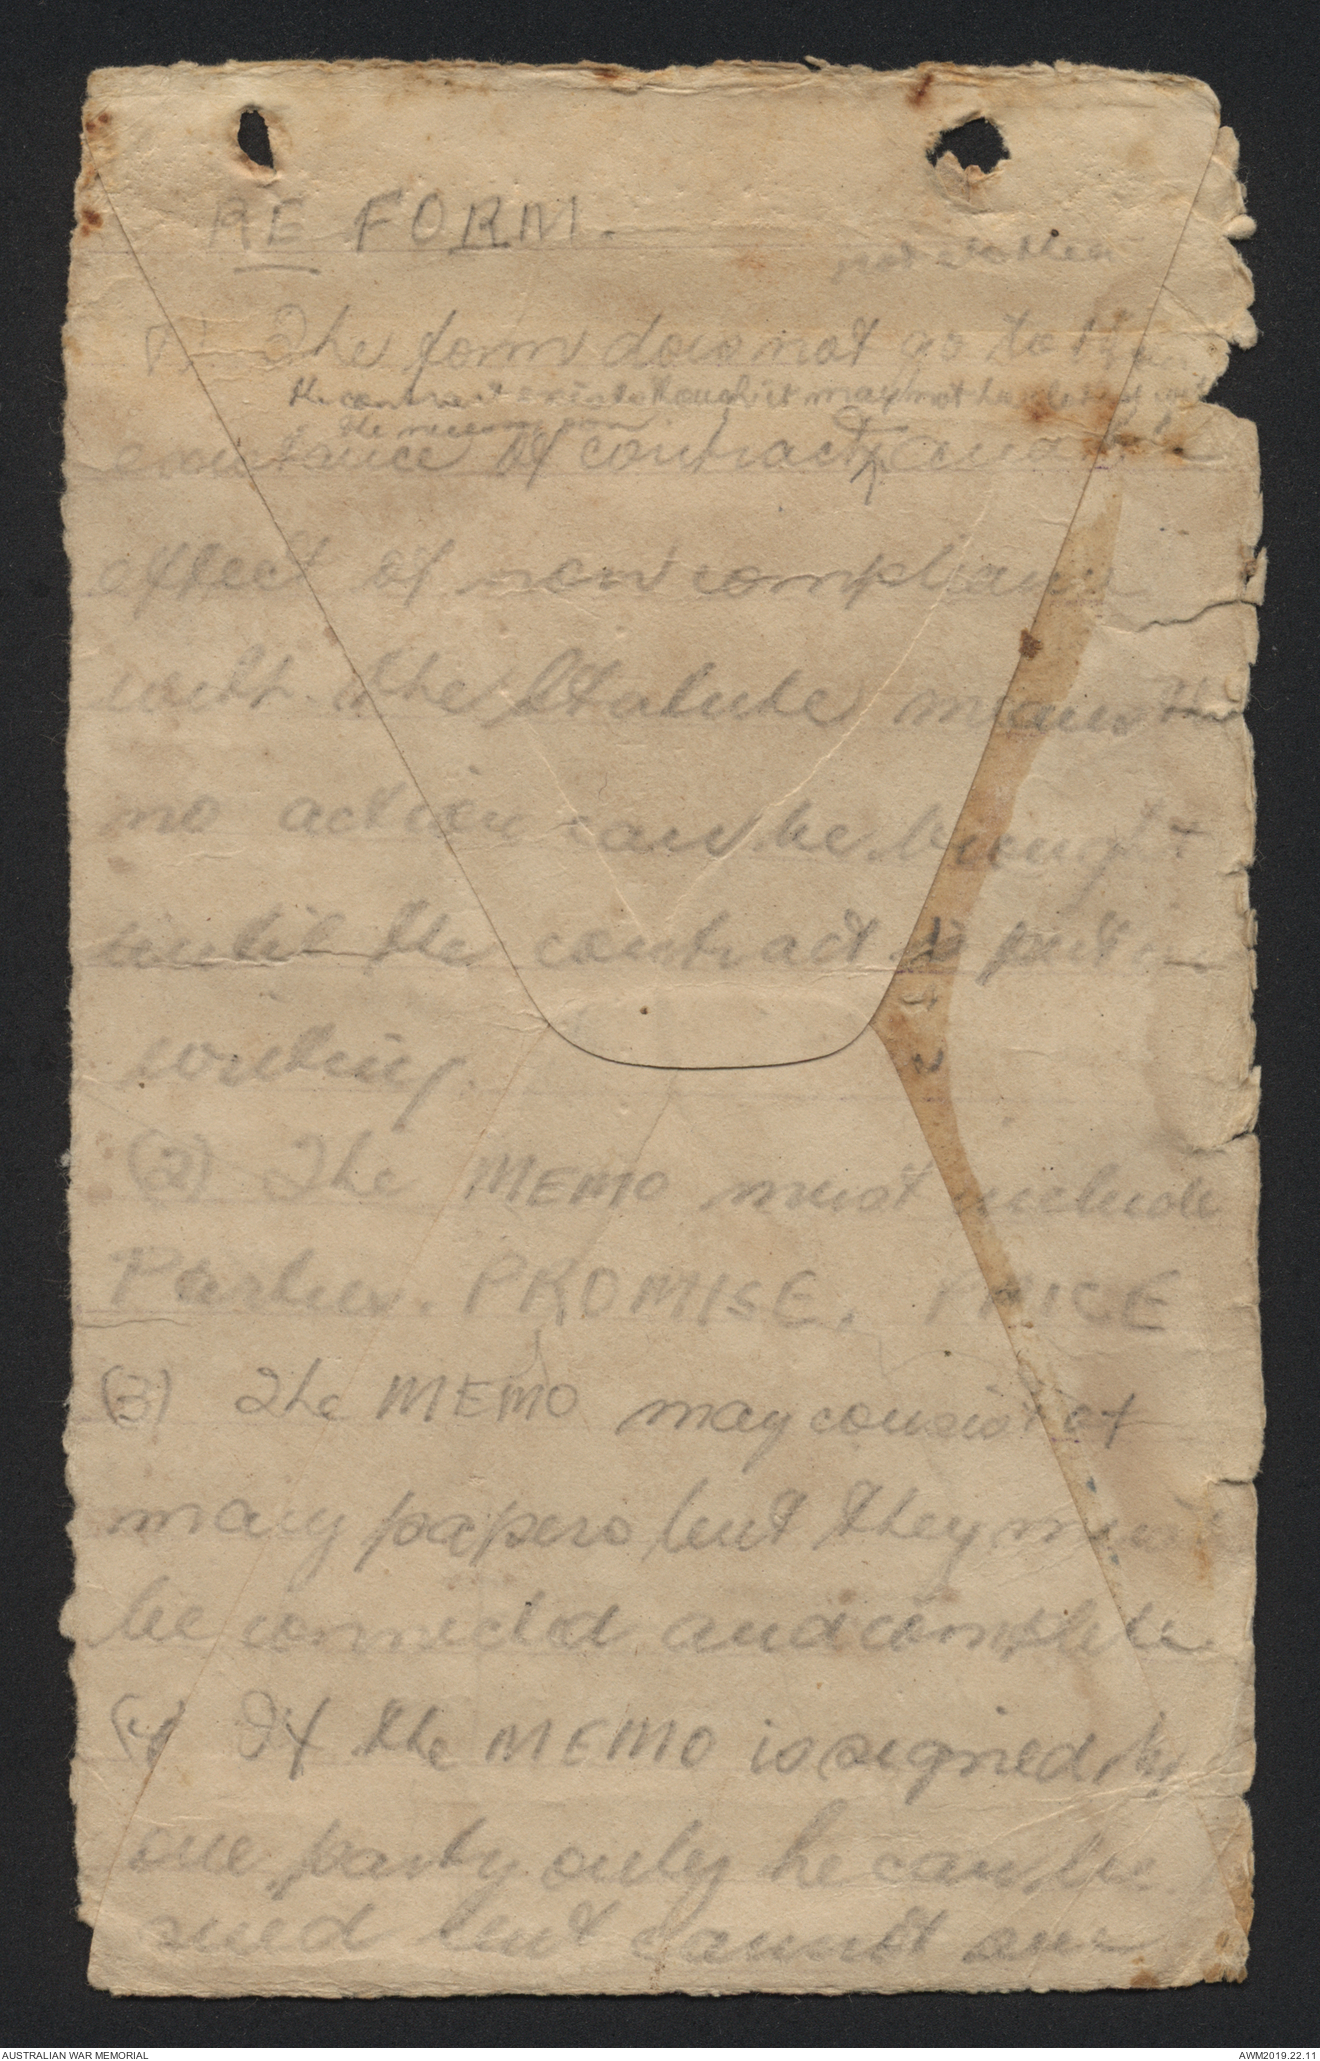 RE FORM.
(1) The form does not go to the
the contract exists though it may not
existance of contract and
effect of non compliance
with the Statute means
no action can be brought
until the contract is put in
writing.
(2) The MEMO must include
Parties. PROMISE. PRICE
(3) The MEMO may consist of
many papers but they must
be connected and complete
(4) If the MEMO is signed by
one party only he can be
sued but cannot sue
AUSTRALIAN WAR MEMORIAL
AWM2019.22.11